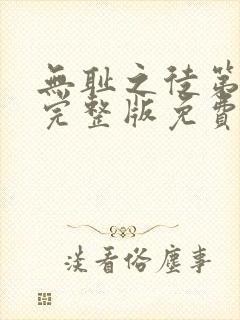 無耻之徒第
完整版免費
淡看俗塵事